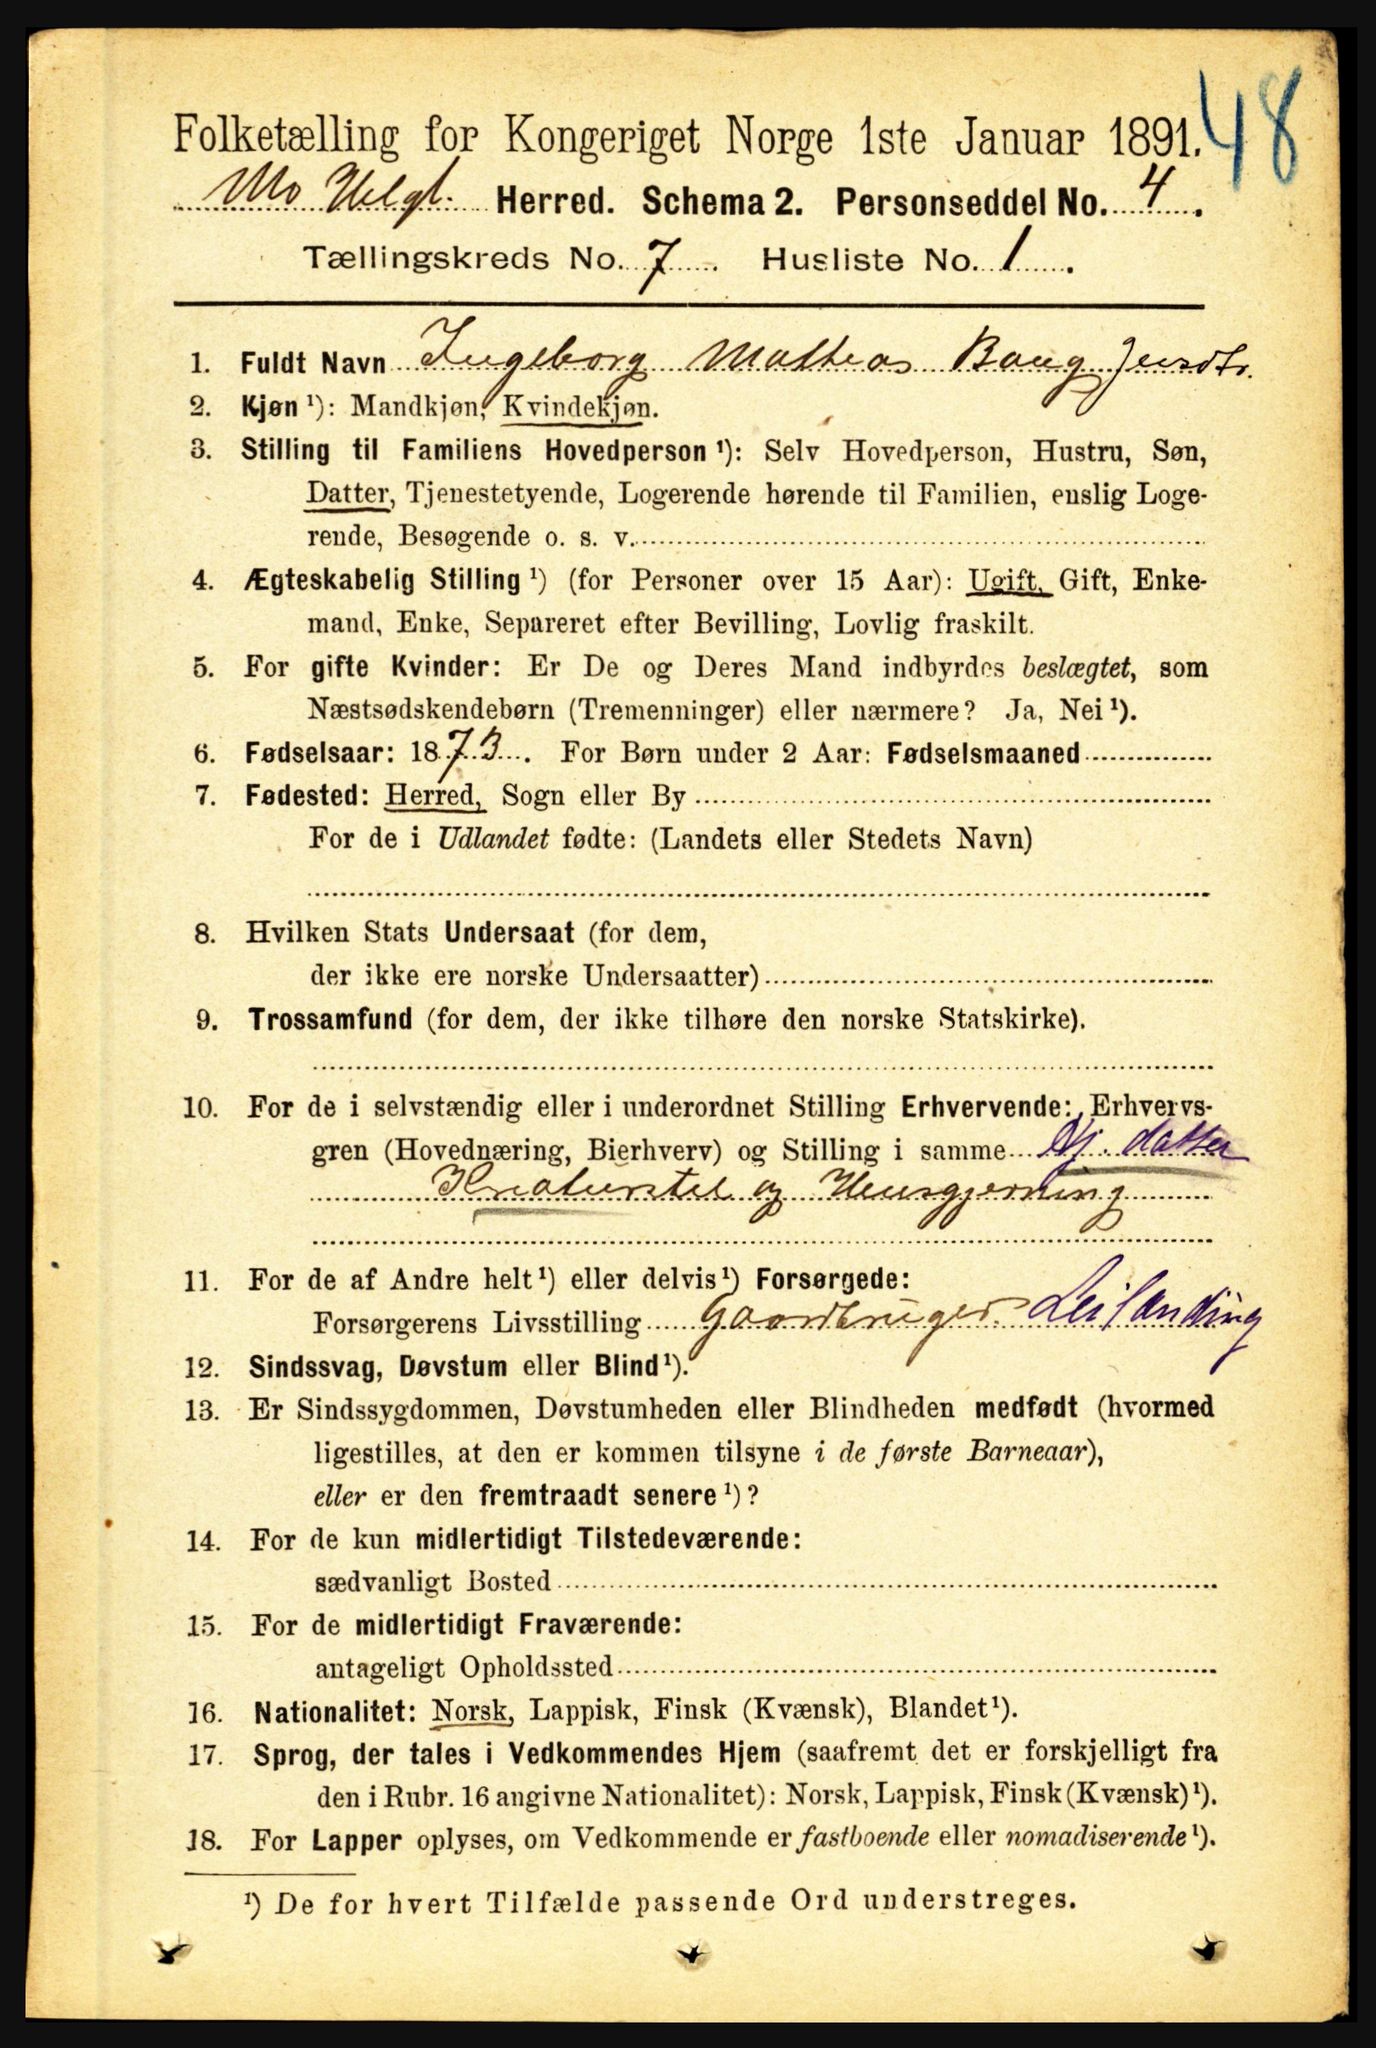 48
Folketælling for Kongeriget Norge 1ste Januar 1891.
Mo Helgl. Herred. Schema 2. Personseddel No. 4.
Tællingskreds No. 7. Husliste No. 1.
1. Fuldt Navn Ingeborg Mathea Baug Jensdtr.
2. Kjøn ¹): Mandkjøn, Kvindekjøn.
3. Stilling til Familiens Hovedperson ¹): Selv Hovedperson, Hustru, Søn,
Datter, Tjenestetyende, Logerende hørende til Familien, enslig Loge-
rende, Besøgende o. s. v.
4. Ægteskabelig Stilling ¹) (for Personer over 15 Aar): Ugift, Gift, Enke-
mand, Enke, Separeret efter Bevilling, Lovlig fraskilt.
5. For gifte Kvinder: Er De og Deres Mand indbyrdes beslægtet, som
Næstsødskendebørn (Tremenninger) eller nærmere? Ja, Nei ¹).
6. Fødselsaar: 1873. For Børn under 2 Aar: Fødselsmaaned
7. Fødested: Herred, Sogn eller By
For de i Udlandet fødte: (Landets eller Stedets Navn)
8. Hvilken Stats Undersaat (for dem,
der ikke ere norske Undersaatter)
9. Trossamfund (for dem, der ikke tilhøre den norske Statskirke).
10. For de i selvstændig eller i underordnet Stilling Erhvervende: Erhvervs-
gren (Hovednæring, Bierhverv) og Stilling i samme datter
Kreaturstel og Husgjerning
11. For de af Andre helt ¹) eller delvis ¹) Forsørgede:
Forsørgerens Livsstilling Gaardbruger. Leilænding
12. Sindssvag, Døvstum eller Blind ¹).
13. Er Sindssygdommen, Døvstumheden eller Blindheden medfødt (hvormed
ligestilles, at den er kommen tilsyne i de første Barneaar),
eller er den fremtraadt senere ¹)?
14. For de kun midlertidigt Tilstedeværende:
sædvanligt Bosted
15. For de midlertidigt Fraværende:
antageligt Opholdssted
16. Nationalitet: Norsk, Lappisk, Finsk (Kvænsk), Blandet ¹).
17. Sprog, der tales i Vedkommendes Hjem (saafremt det er forskjelligt fra
den i Rubr. 16 angivne Nationalitet): Norsk, Lappisk, Finsk (Kvænsk) ¹).
18. For Lapper oplyses, om Vedkommende er fastboende eller nomadiserende ¹).
¹) De for hvert Tilfælde passende Ord understreges.